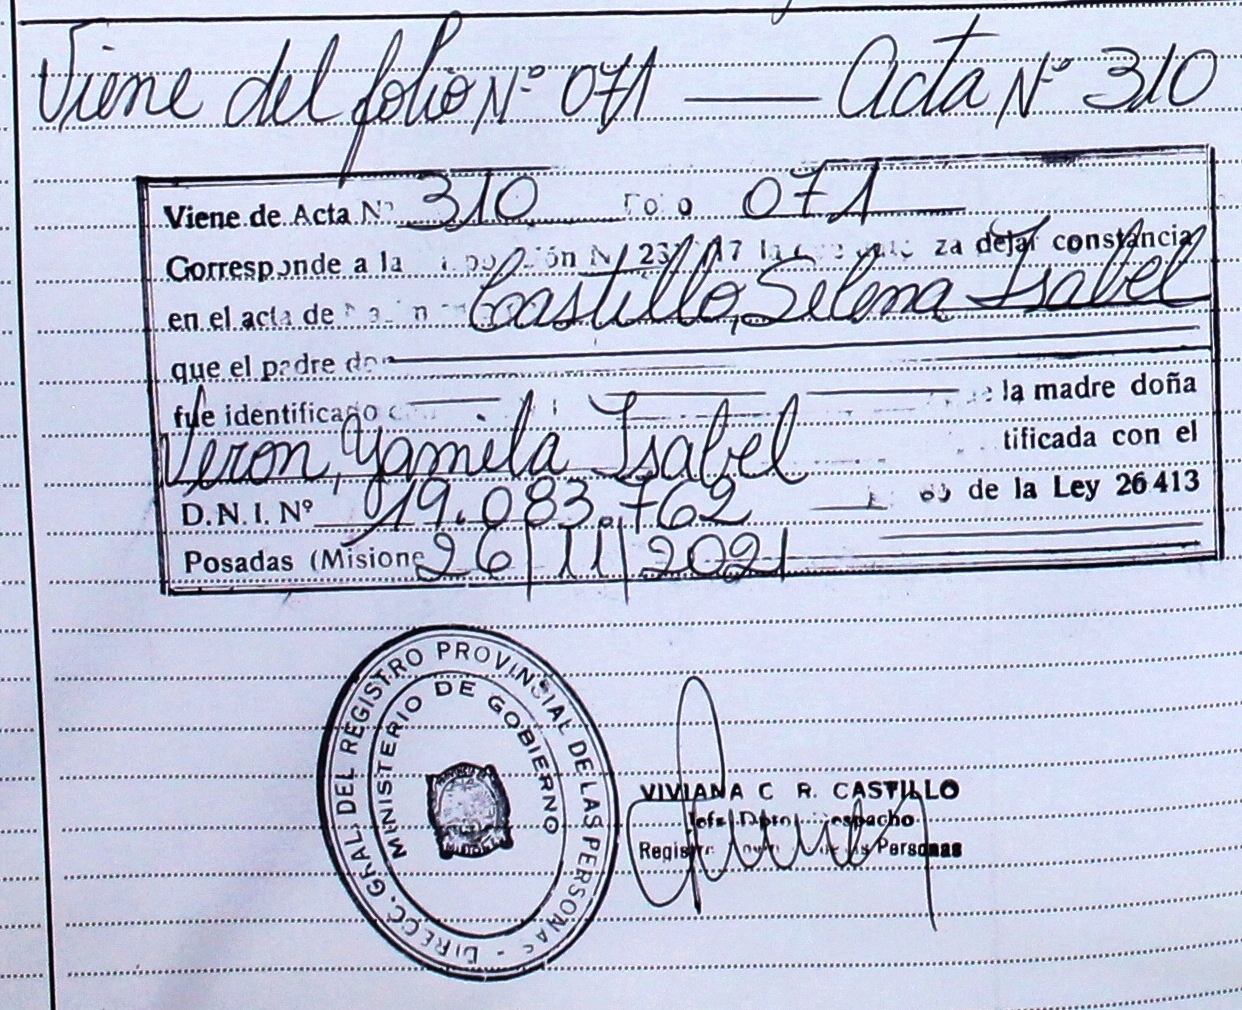 Viene del folio Nº 071 — Acta Nº 310
Viene de Acta Nº 310 Folio 071
Corresponde a la N 23 17 za dejar constancia
en el acta de Castillo, Selena Isabel
que el padre don
fue identificado la madre doña
Veron, Yamila Isabel tificada con el
D.N.I. Nº 19.083.762 de la Ley 26413
Posadas (Misione 26/11/2021
DIRECC. GRAL. DEL REGISTRO PROVINCIAL DE LAS PERSONAS -
MINISTERIO DE GOBIERNO
VIVIANA C R. CASTILLO
Jefa Dpto. espacho
Regis Personas